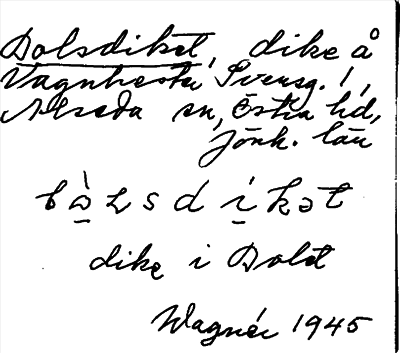 Bolsdiket, dike å
Vagnhester Svensg. 1,
Alseda sn, Östra hd,
Jönk. län
bὼʟsdíkət
dike i Bolet
Wagnér 1945